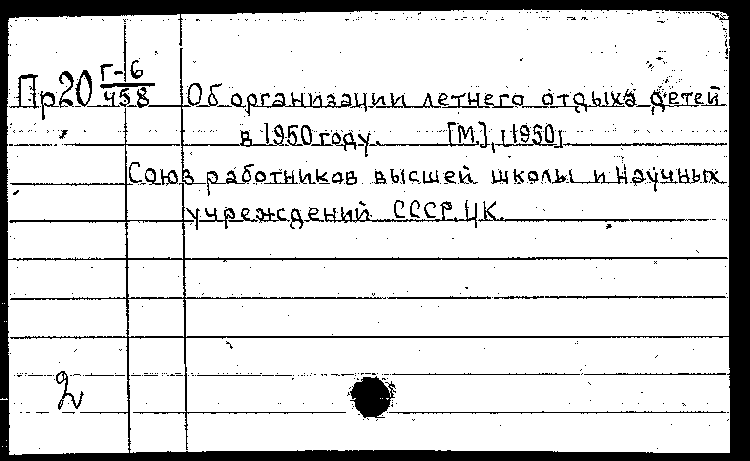 Пр20 Г-6
458
Об организации летнего отдыха детей
в 1950 году. [М.], [1950]
Союз работников высшей школы и научных
учреждений СССР. ЦК.
2